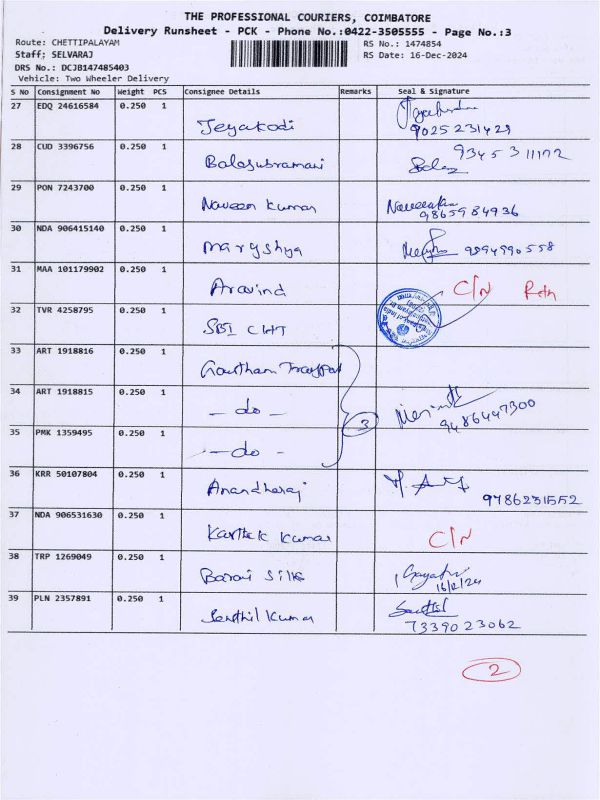 THE PROFESSIONAL COURIERS, COIMBATORE
Delivery Runsheet - PCK - Phone No.:0422-3505555 - Page No.:3
Route: CHETTIPALAYAM RS No.: 1474854
Staff: SELVARAJ RS Date: 16-Dec-2024
DRS No.: DCJB147485403
Vehicle: Two Wheeler Delivery
S No Consignment No Weight PCS Consignee Details Remarks Seal & Signature
27 EDQ 24616584 0.250 1 Jeyakodi
9025231429
28 CUD 3396756 0.250 1 Balasubramani
29 PON 7243700 0.250 1 Naveen Kumar
9865984936
30 NDA 906415140 0.250 1 9894990558
31 MAA 101179902 0.250 1 Aravind C/N Rtn
32 TVR 4258795 0.250 1 SBI CHT
33 ART 1918816 0.250 1 Goutham
34 ART 1918815 0.250 1 - do -
3 9486447300
35 PMK 1359495 0.250 1 - do -
36 KRR 50107804 0.250 1 Anandharaj
9786231552
37 NDA 906531630 0.250 1 Karthik Kumar C/N
38 TRP 1269049 0.250 1 Barani Silks Gayathri
16/12/24
39 PLN 2357891 0.250 1 Senthil Kumar
7339023062
2